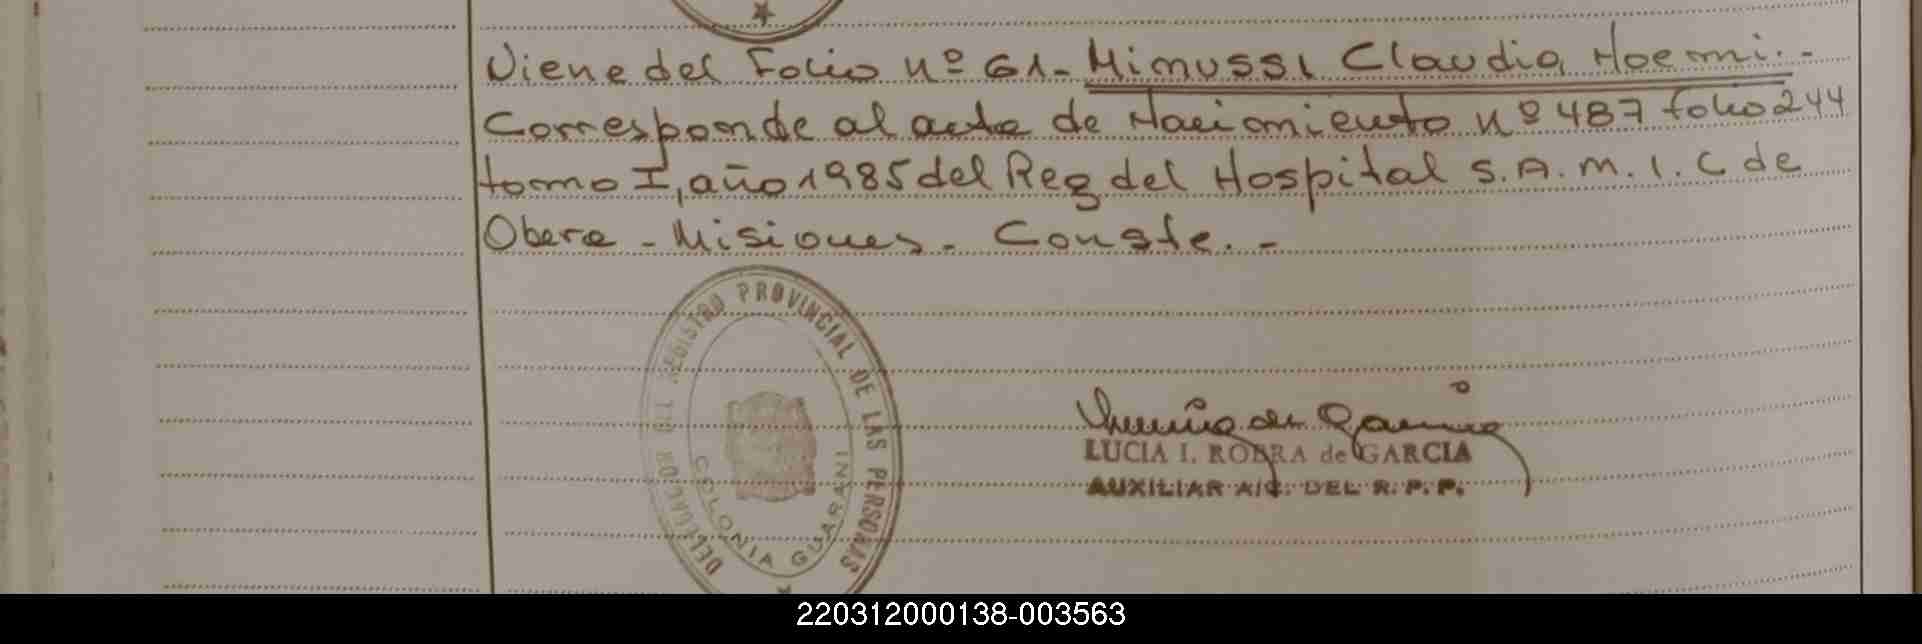 Viene del Folio nº 61.- Minussi Claudia Noemi.-
Corresponde al acta de Nacimiento nº 487 folio 244
tomo I, año 1985 del Reg del Hospital S.A.M.I.C de
Obera - Misiones. Conste.-
DELEGACION DEL REGISTRO PROVINCIAL DE LAS PERSONAS
COLONIA GUARANI
LUCIA I. ROBRA de GARCIA
AUXILIAR A/C. DEL R. P. P.
220312000138-003563